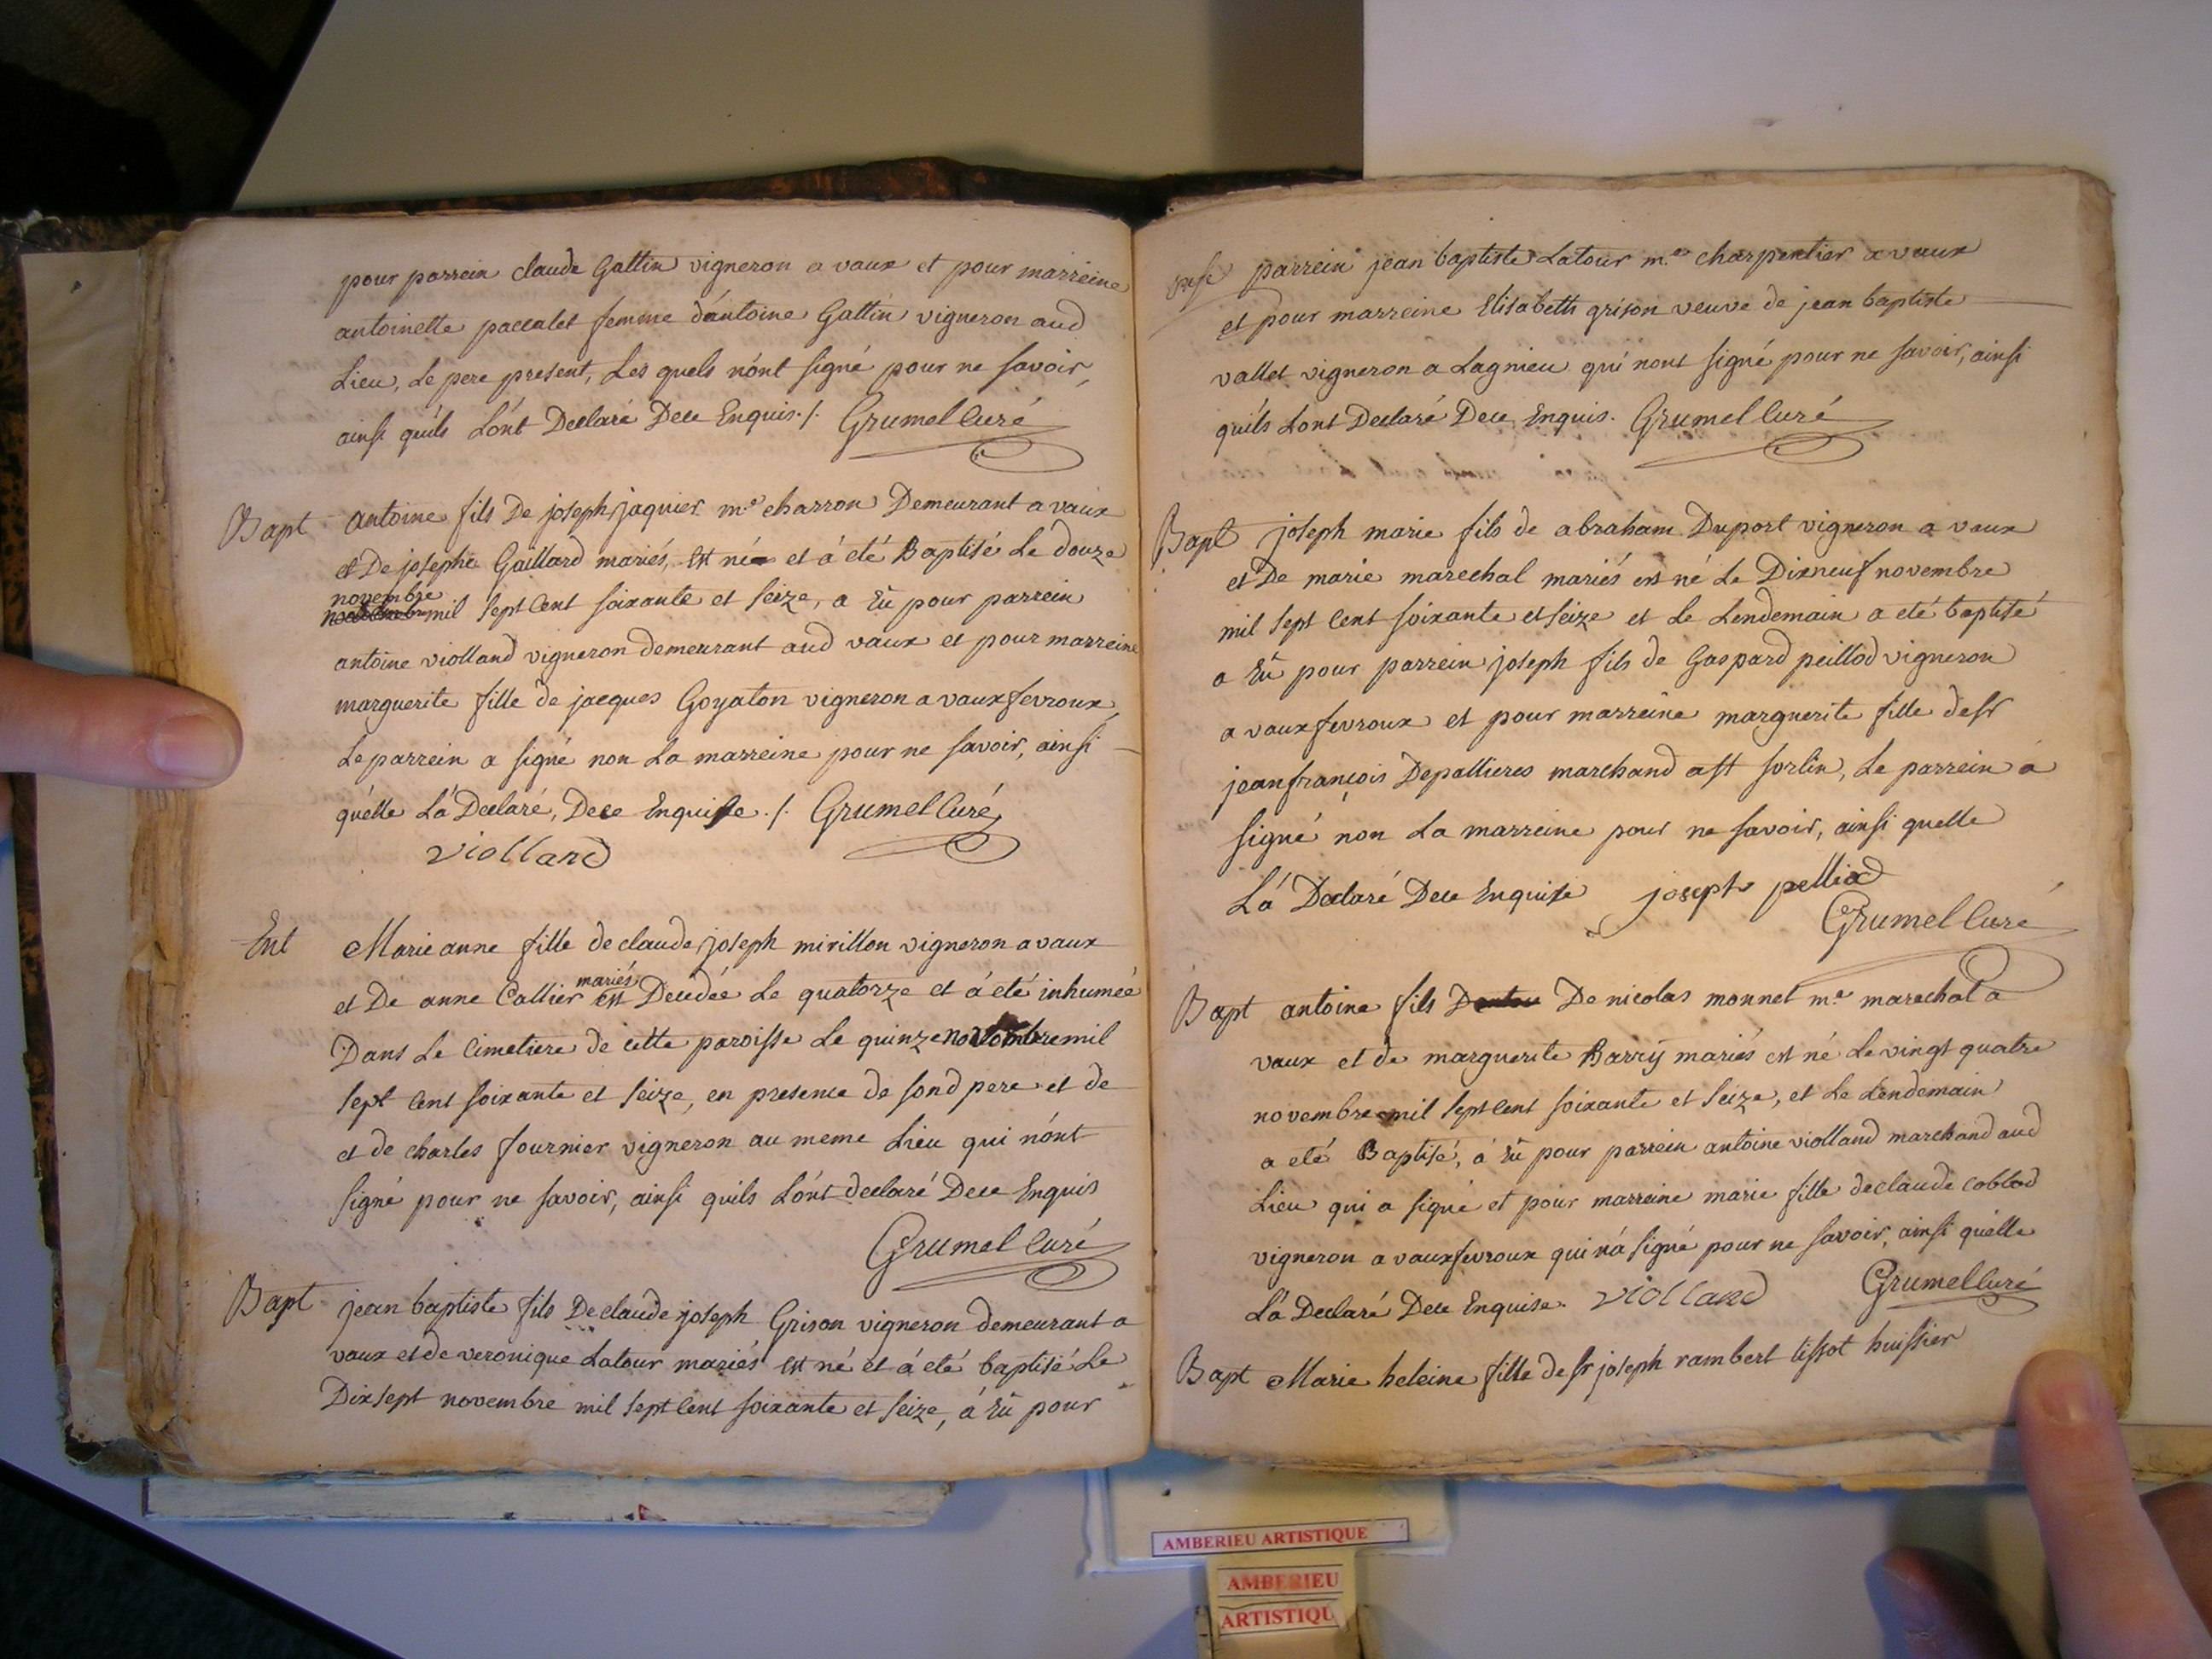 pour parrein claude Gattin vigneron a vaux et pour marreine
antoinette paccalet femme d'antoine Gattin vigneron aud
Lieu, Le pere present, Les quels n'ont signé pour ne savoir,
ainsi qu'ils L'ont Declaré Dece Enquis ./. Grumel Curé
Bapt antoine fils De joseph jaquier m.e charron Demeurant a vaux
et De josephe Gaillard mariés, est né et á eté Baptisé Le douze
novembre
mil sept Cent soixante et seize, a Eû pour parrein
antoine violland vigneron demeurant aud vaux et pour marreine
marguerite fille de jacques Goyaton vigneron a vauxfevroux,
Le parrein a signé non La marreine pour ne savoir, ainsi
qu'elle L'á Declaré, Dece Enquise ./. Grumel Curé
Violland
Ent Marie anne fille de claude joseph mirillon vigneron a vaux
mariés
et De anne Callier est Decedée Le quatorze et á eté inhumée
Dans Le Cimetiere de cette paroisse Le quinze novembre mil
sept Cent soixante et seize, en presence de sond pere et de
et de charles fournier vigneron au meme Lieu qui n'ont
signé pour ne savoir, ainsi quils L'ont declaré Dece Enquis
Grumel Curé
Bapt jean baptiste fils De claude joseph Grison vigneron demeurant a
vaux et de veronique Latour mariés est né et á eté baptisé Le
Dixsept novembre mil sept Cent soixante et seize, á Eû pour
parrein jean baptiste Latour m.e charpentier a vaux
et pour marreine Elisabeth grison veuve de jean baptiste
vallet vigneron a Lagnieu qui nont signé pour ne savoir, ainsi
qu'ils Lont Declaré Dece Enquis. Grumel Curé
Bapt joseph marie fils de abraham Duport vigneron a vaux
et De marie marechal mariés est né Le Dixneuf novembre
mil sept Cent soixante et seize et Le Lendemain a eté baptisé
a Eû pour parrein joseph fils de Gaspard peillod vigneron
a vauxfevroux et pour marreine marguerite fille de sr
jean françois Depallieres marchand a st sorlin, Le parrein á
signé non La marreine pour ne savoir, ainsi quelle
L'á Declaré Dece Enquise joseph pelliod
Grumel Curé
Bapt antoine fils De nicolas monnet m.e marechal a
vaux et de marguerite Barrÿ mariés est né Le vingt quatre
novembre mil sept Cent soixante et seize, et Le Lendemain
a eté Baptisé, á Eû pour parrein antoine violland marchand aud
Lieu qui a signé et pour marreine marie fille de claude coblod
vigneron a vauxfevroux qui n'á signé pour ne savoir, ainsi qu'elle
L'á Declaré Dece Enquise. Violland Grumel Curé
Bapt Marie heleine fille de sr joseph rambert tissot huissier
AMBERIEU ARTISTIQUE
AMBERIEU
ARTISTIQU